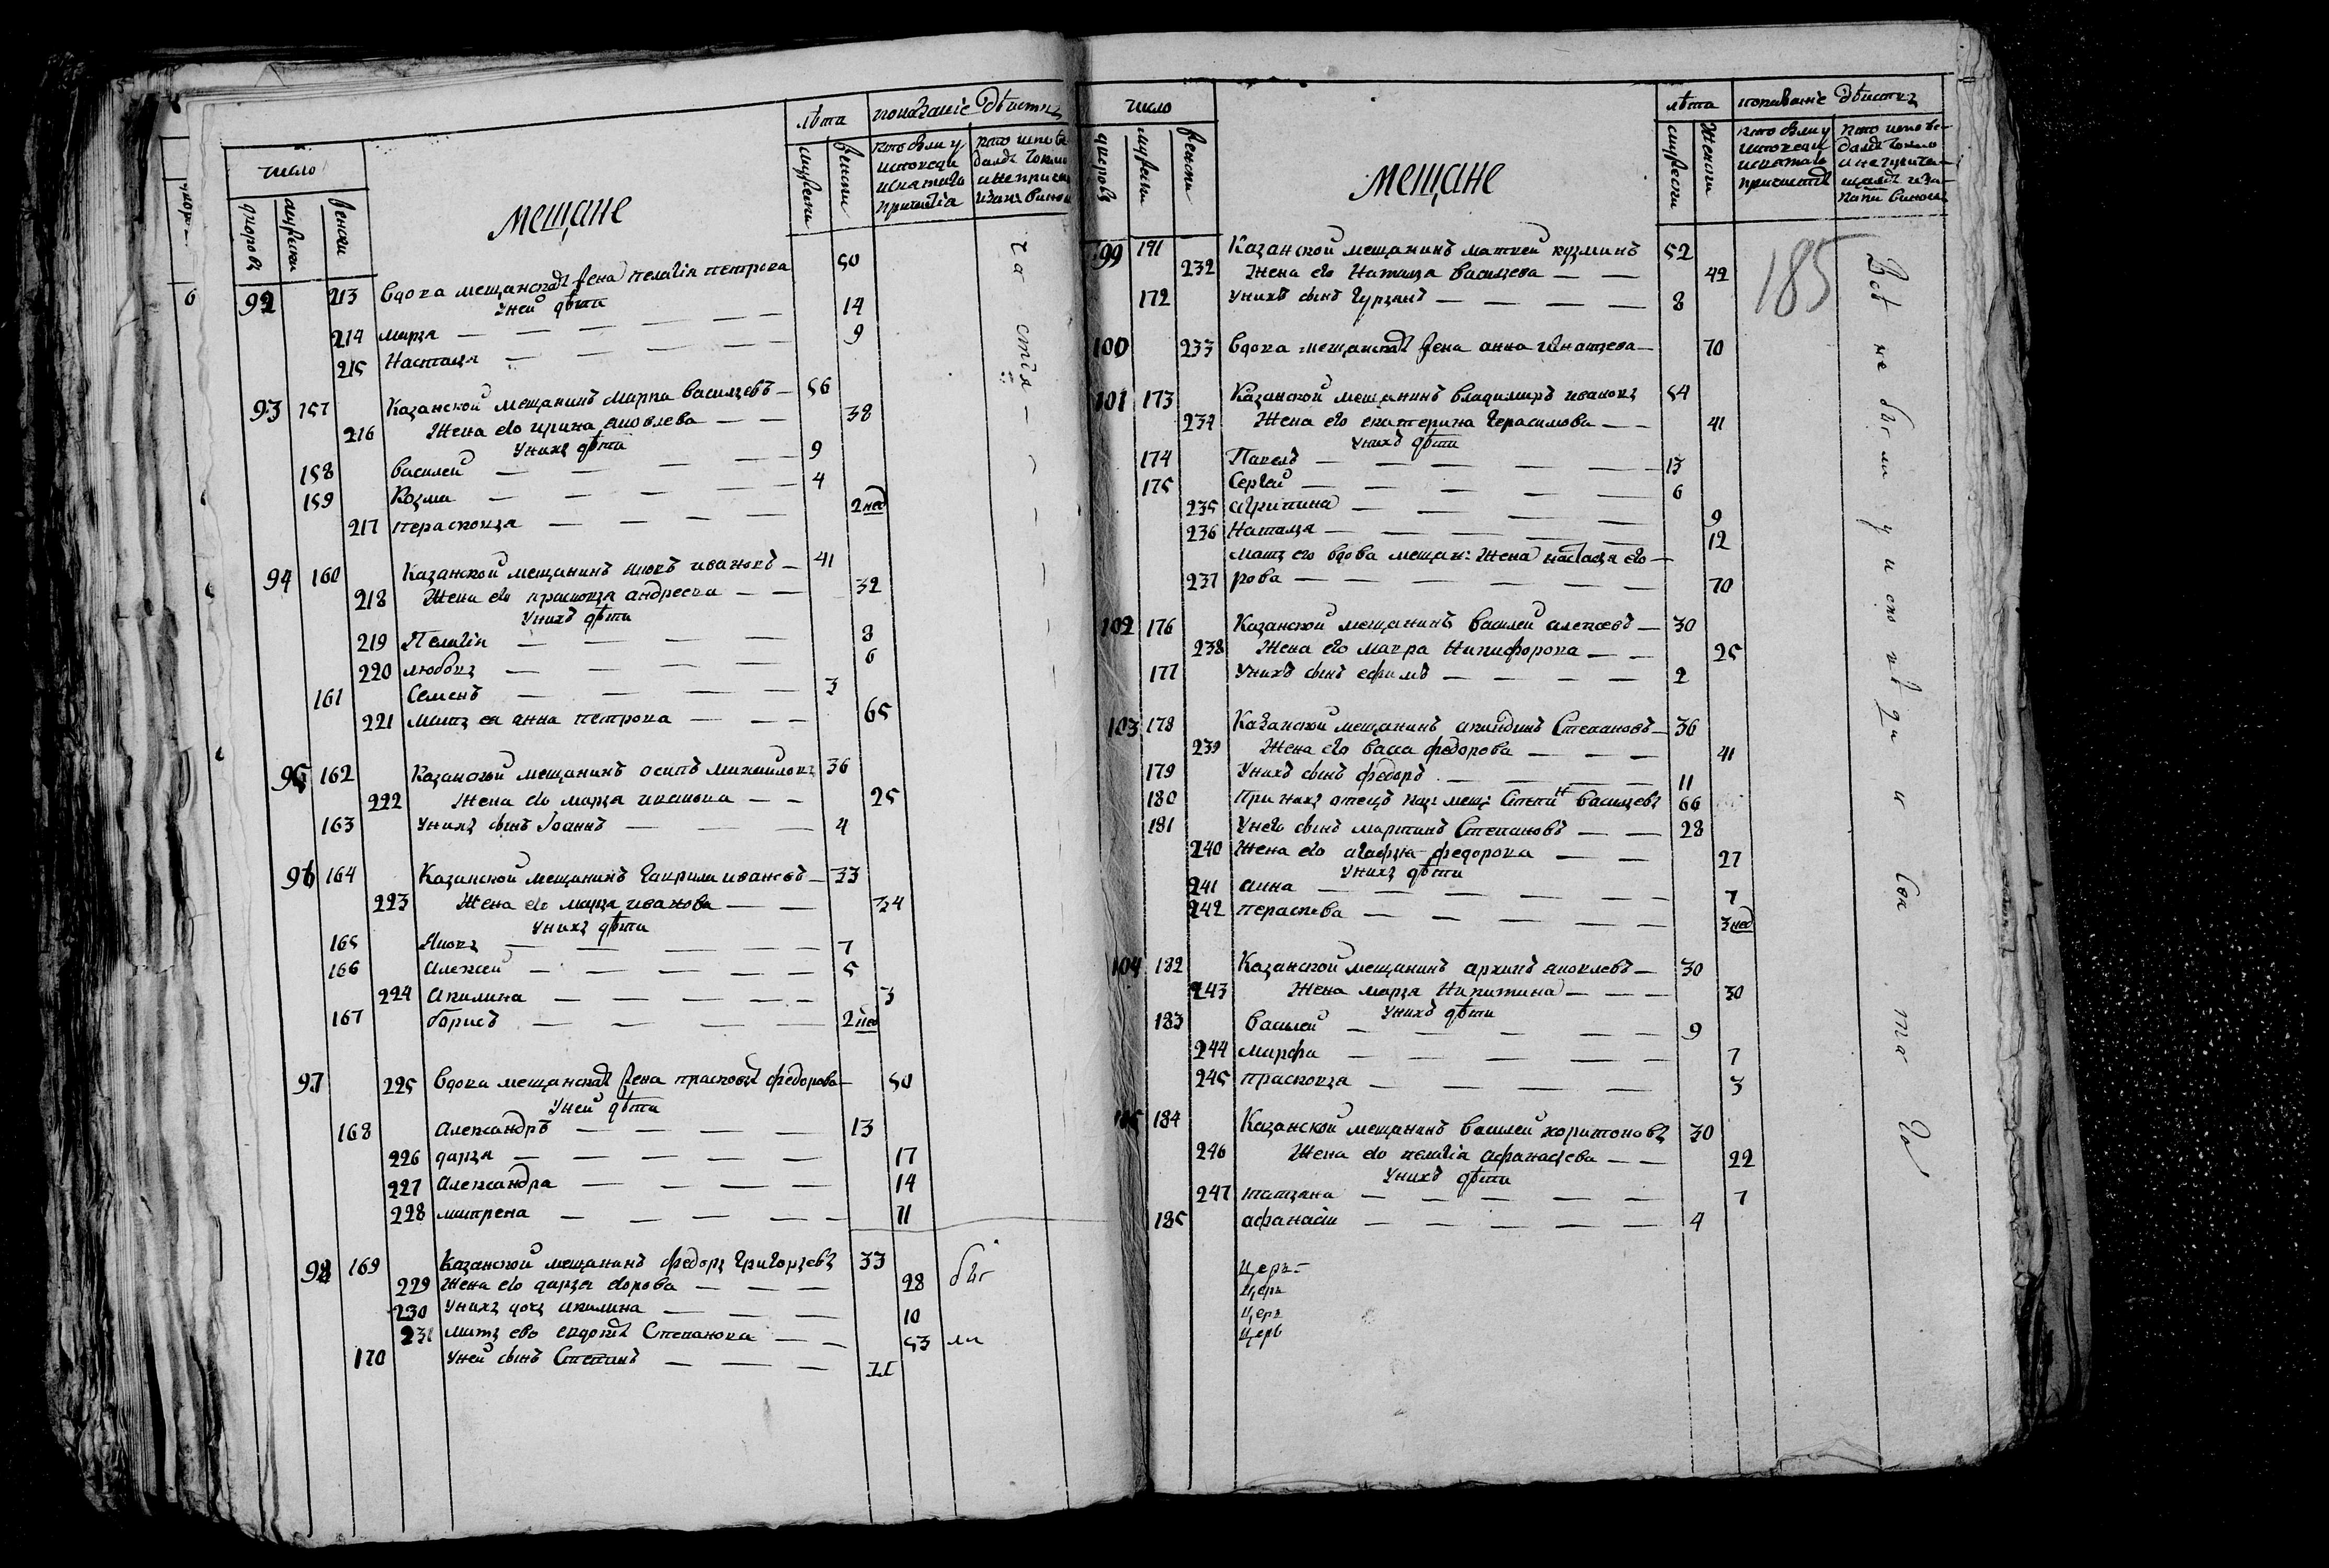 число
лѣта
показаніе дѣиствъ
дворовъ
мужеска
женска
мещане
мужеска
женска
кто были у исповеди и святаго причастія
кто исповедалъ токмо
92 213 Вдова мещанская жена пелагія петрова 50
У ней дѣти
214 марья — 14
215 Настасья — 9
93 157 Казанской мещанинъ марка васильевъ — 56
216 Жена его ирина яковлева — 38
У нихъ дѣти
158 василей — 9
159 Козма — 4
217 песковья — 2 нед
94 160 Казанской мещанинъ яковъ ивановъ — 41
218 Жена его прасковья андреева — 32
У нихъ дѣти
219 Пелагія — 8
220 любовь — 6
161 Семенъ — 3
221 мать ея анна петрова — 65
95 162 Казанской мещанинъ осипъ михаиловъ 36
222 Жена его марья иванова — 25
163 У нихъ сынъ Іоаннъ — 4
96 164 Казанской мещанинъ гаврила ивановъ — 33
223 Жена его марья иванова — 34
У нихъ дѣти
165 Яковъ — 7
166 алексей — 5
224 акилина — 3
167 борисъ — 2 нед
97 225 Вдова мещанская жена прасковья федорова — 50
У ней дѣти
168 александръ — 13
226 дарья — 17
227 александра — 14
228 матрена — 11
98 169 Казанской мещанинъ федоръ григорьевъ 33
229 Жена его дарья егорова — 28
230 У нихъ дочь акилина — 10
231 мать ево Степанова — 53
170 У ней сынъ Степанъ — 11
бы
ли
число
лѣта
показаніе дѣиствъ
дворовъ
мужески
женски
мещане
мужески
женски
кто были у исповеди и святаго причастія
кто исповедалъ токмо а не причащался и за какими винами
185
99 171 Казанской мещанинъ матвей кузминъ 52
232 Жена его Наталья васильева — 42
172 У нихъ сынъ гурьянъ — 8
100 233 Вдова мещанская жена анна игнатьева — 70
101 173 Казанской мещанинъ владимиръ ивановъ 54
234 Жена его екатерина герасимова — 41
У нихъ дѣти
174 Павелъ — 13
175 Сергей — 6
235 агрипина — 9
236 Наталья — 12
мать его вдова мещан: жена настасья его —
237 рова — 70
102 176 Казанской мещанинъ василей алексеевъ — 30
238 Жена его мавра Никифорова — 25
177 У нихъ сынъ ефимъ — 2
103 178 Казанской мещанинъ акиндинъ Степановъ — 36
239 Жена его васа федорова — 41
179 У нихъ сынъ федоръ — 11
180 При нихъ отецъ каз: мещ: Степанъ васильевъ 66
181 У него сынъ мартинъ Степановъ — 28
240 Жена его агафья федорова — 27
У нихъ дѣти
241 анна — 7
242 пераскева — 3 нед
104 182 Казанской мещанинъ архипъ яковлевъ — 30
243 Жена марья Никитина — 30
У нихъ дѣти
183 василей — 9
244 марфа — 7
245 прасковья — 3
105 184 Казанской мещанинъ василей харитоновъ 30
246 Жена его пелагія афанасьева — 22
У нихъ дѣти
247 татьяна — 7
185 афанасіи — 4
Церк
Церк
Церк
Церк
Всѣ не были у исповѣди и свя та го